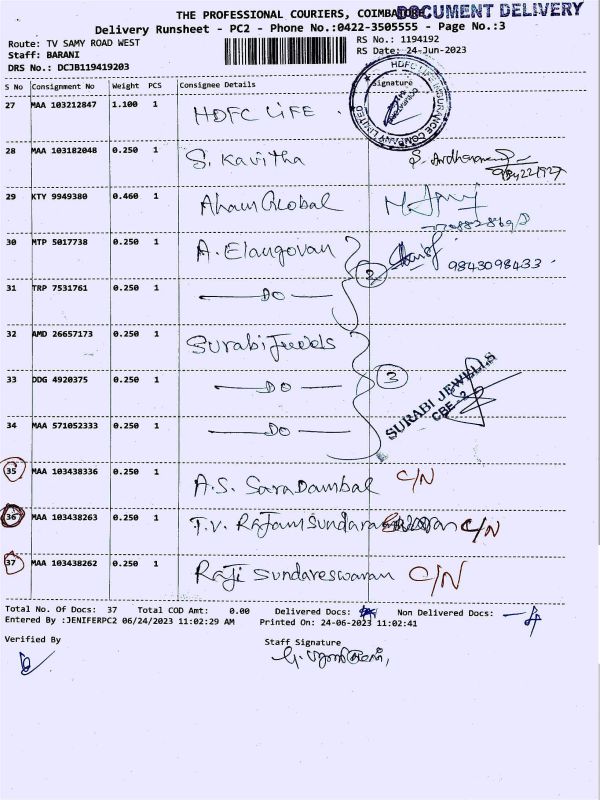 THE PROFESSIONAL COURIERS, COIMBATORE
DOCUMENT DELIVERY
Delivery Runsheet - PC2 - Phone No.:0422-3505555 - Page No.:3
Route: TV SAMY ROAD WEST
RS No.: 1194192
Staff: BARANI
RS Date: 24-Jun-2023
DRS No.: DCJB119419203
S No Consignment No Weight PCS Consignee Details Signature
HDFC LIFE INSURANCE COMPANY LIMITED
27 MAA 103212847 1.100 1 HDFC LIFE
28 MAA 103182048 0.250 1 S. Kavitha
29 KTY 9949380 0.460 1 Aham Global
30 MTP 5017738 0.250 1 A. Elangovan
2
9843098433
31 TRP 7531761 0.250 1 DO
32 AMD 26657173 0.250 1 Surabi Jewels
33 DDG 4920375 0.250 1 DO
3
SURABI JEWELLS
CBE-2
34 MAA 571052333 0.250 1 DO
35 MAA 103438336 0.250 1 A.S. Saradambal C/N
36 MAA 103438263 0.250 1 T.V. Rajam C/N
37 MAA 103438262 0.250 1 Raji Sundareswaran C/N
Total No. Of Docs: 37 Total COD Amt: 0.00 Delivered Docs: Non Delivered Docs: 4
Entered By :JENIFERPC2 06/24/2023 11:02:29 AM Printed On: 24-06-2023 11:02:41
Verified By
Staff Signature